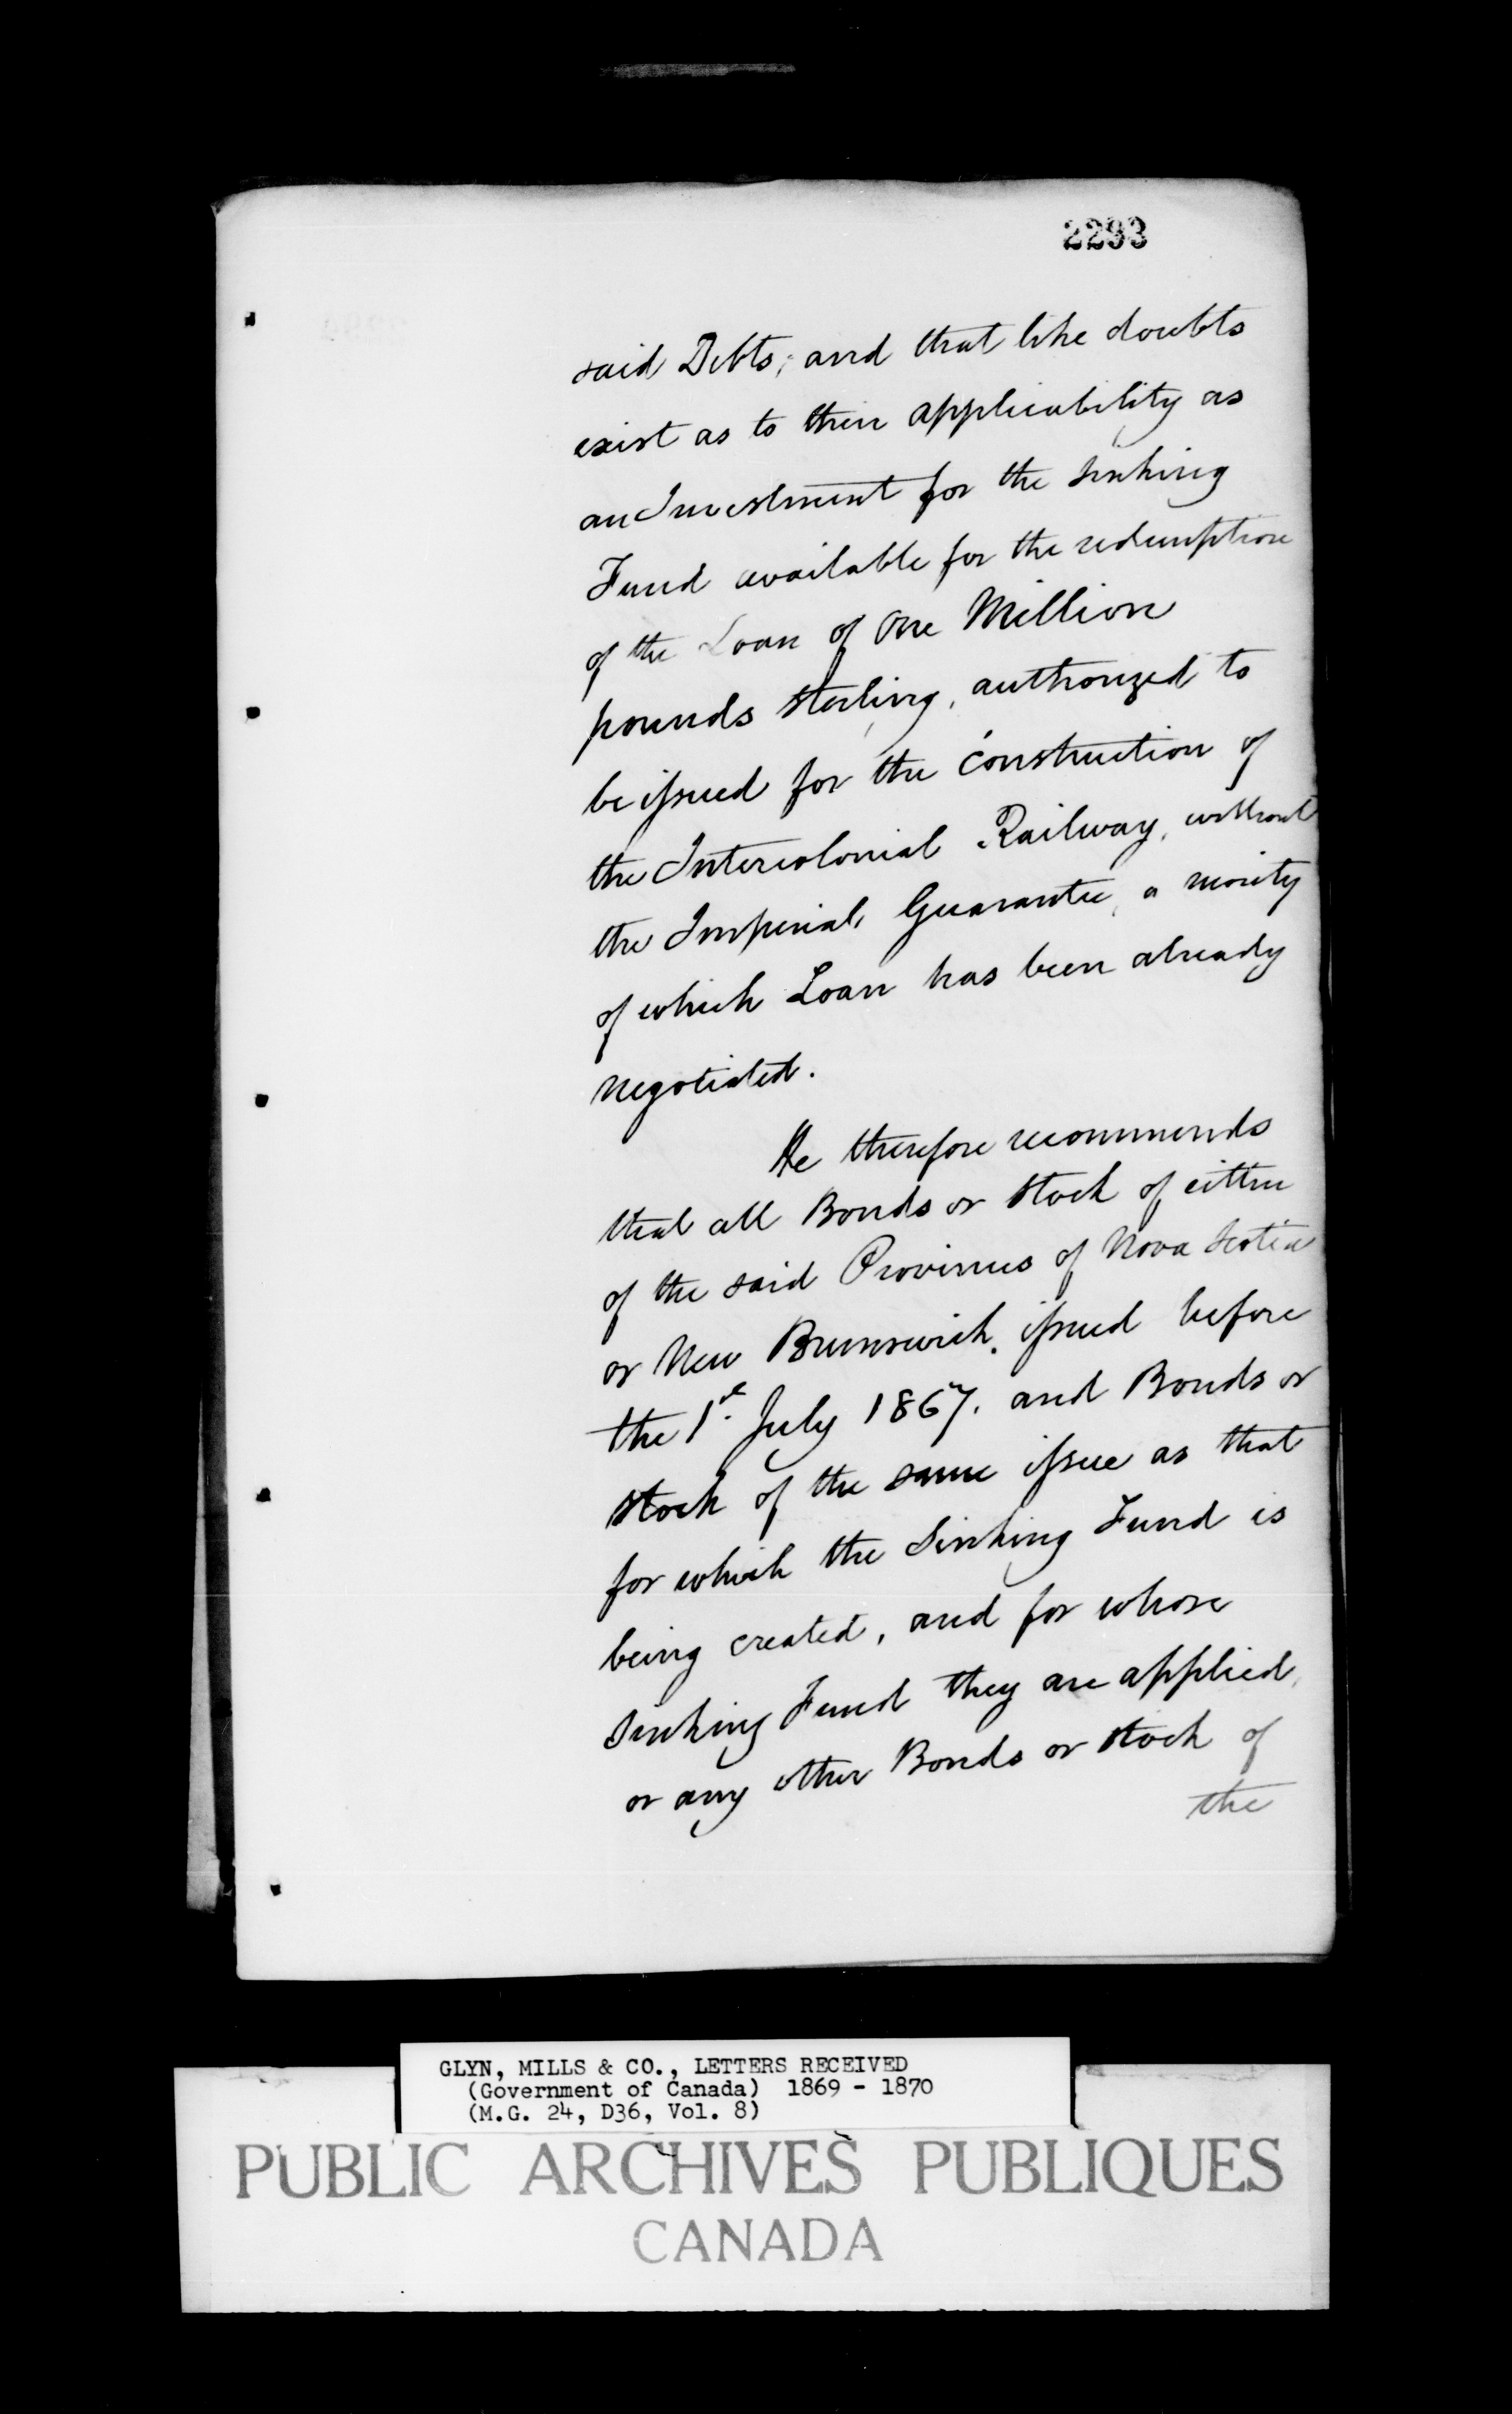 2293
said Debts; and that like doubts
exist as to their applicability as
an Investment for the sinking
Fund available for the redemption
of the Loan of One Million
pounds sterling, authorized to
be issued for the construction of
the Intercolonial Railway, without
the Imperial Guarantee, a moiety
of which Loan has been already
negotiated.
He therefore recommends
that all Bonds or Stock of either
of the said Provinces of Nova Scotia
or New Brunswick, issued before
the 1st July 1867. and Bonds or
Stock of the same issue as that
for which the Sinking Fund is
being created, and for whose
Sinking Fund they are applied,
or any other Bonds or Stock of
the
GLYN, MILLS & CO., LETTERS RECEIVED
(Government of Canada) 1869 - 1870
(M.G. 24, D36, Vol. 8)
PUBLIC ARCHIVES PUBLIQUES
CANADA